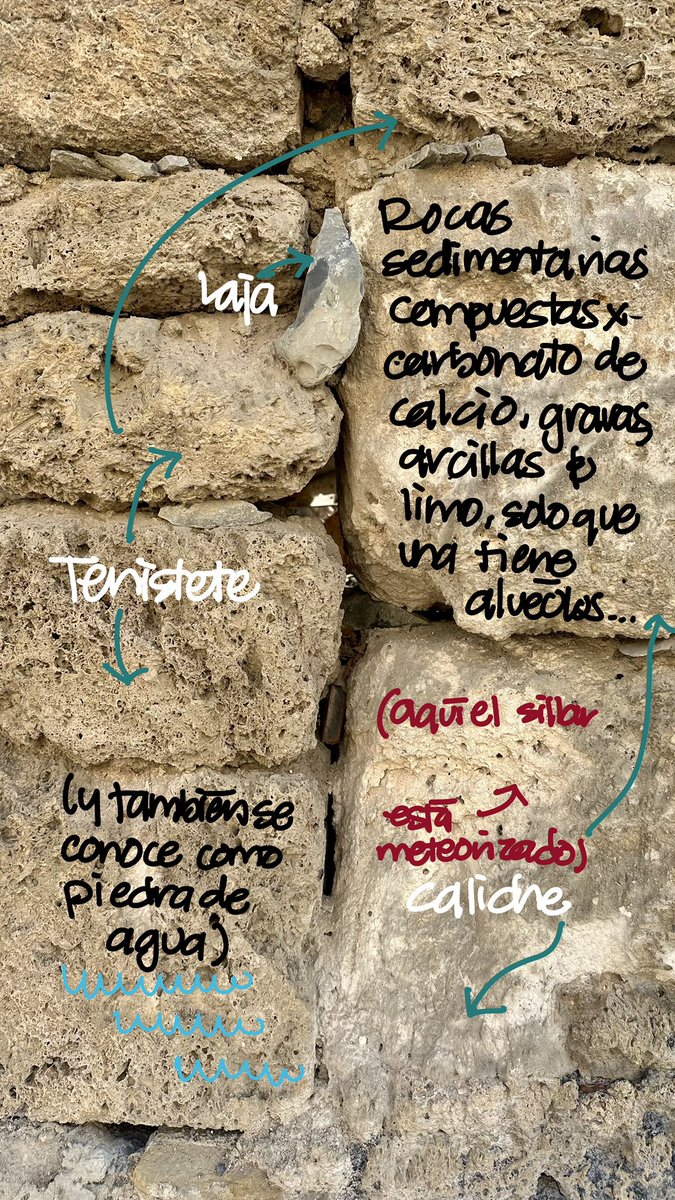 Laja
Rocas
sedimentarias
compuestas x
carbonato de
calcio, gravas,
arcillas &
limo, solo que
una tiene
alveólos...
Tenistete
(aquí el sillar
está
meteorizado)
(y también se
conoce como
piedra de
agua)
calidre